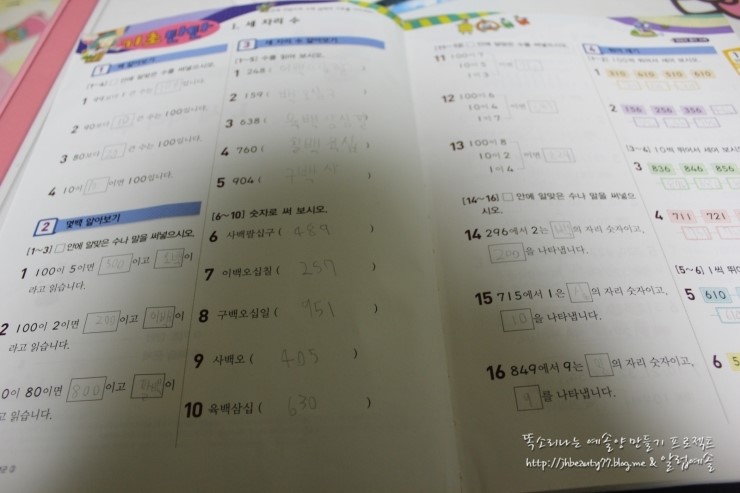 기초탄탄
1. 세 자리 수
1 백 알아보기
[1~4] □안에 알맞은 수를 써넣으시오.
2 90보다 10 큰 수는 100입니다.
4 10이 이면 100입니다.
2 몇백 알아보기
[1~3] □안에 알맞은 수나 말을 써넣으시오.
1 100이 5이면 500 이고 오백 이
라고 읽습니다.
2 100이 2이면 200 이고 이백 이
라고 읽습니다.
0이 80이면 800 이고 팔백 이
고 읽습니다.
3 세 자리 수 알아보기
[1~5] 수를 읽어 보시오.
1 248 (
2 159 (
3 638 (
4 760 ( 칠백육십 )
5 904 ( 구백사 )
[6~10] 숫자로 써 보시오.
6 사백팔십구 ( 489 )
7 이백오십칠 ( 257 )
8 구백오십일 ( 951 )
9 사백오 ( 405 )
10 육백삼십 ( 630 )
□안에 알맞은 수를 써넣으시오.
11 100이 7
10이 5 이면
1이 3
12 100이 6
10이 4 이면
1이 7
13 100이 8
10이 2 이면 824
1이 4
[14~16] □안에 알맞은 수나 말을 써넣으
시오.
14 296에서 2는 백 의 자리 숫자이고,
200 을 나타냅니다.
15 715에서 1은 십 의 자리 숫자이고,
10 을 나타냅니다.
16 849에서 9는 일 의 자리 숫자이고,
9 를 나타냅니다.
4 뛰어 세기
1 310 410 510 610
2 156 256 356
[3~6] 10씩 뛰어서 세어 보시오.
3 836 846 856
4 711 721
[5~6] 1씩 뛰어
5 610
6
똑소리나는 예솔양 만들기 프로젝트
http://jhbeauty77.blog.me & 알럽예솔